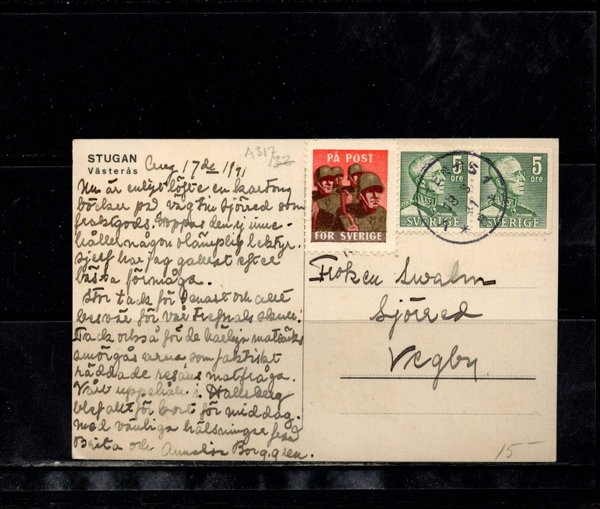 STUGAN
Västerås
A317
/32
Aug. 17de 1941
Nu är enligt löfte en kartong
böcker på väg till Sjöred som
fraktgods. Hoppas den ej inne-
håller någon olämplig lektyr.
själv har jag gallrat efter
bästa förmåga.
Stor tack för senast och allt
besvär för vår skull!
Tack också för de härliga matsäcks
smörgåsarna som faktiskt
räddade resans matfråga.
Vårt uppehåll i Hallsberg
blev allt för kort för middag.
med vänliga hälsningar från
Brita och Borggren.
PÅ POST
FÖR SVERIGE
5
öre
SVERIGE
5
öre
SVERIGE
Fröken Swalm
Sjöred
Vegby
15-